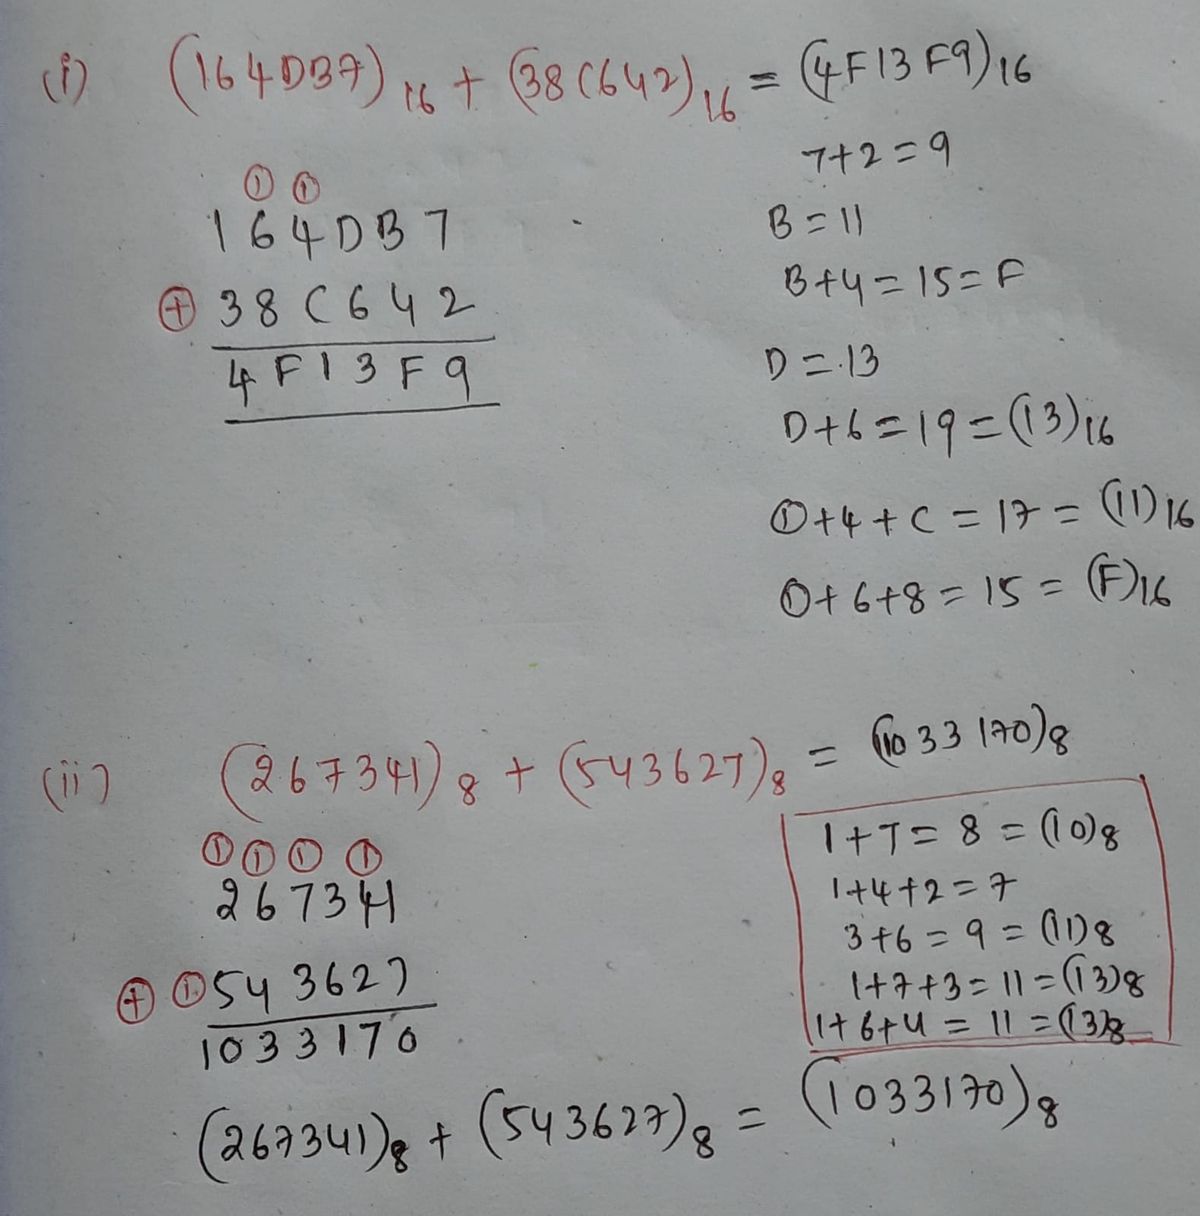 (i) (164DB7)16 + (38C642)16 = (4F13F9)16
7+2=9
① ①
164DB7
B=11
B+4=15=F
⊕ 38C642
4F13F9
D=13
D+6=19=(13)16
①+4+C=17=(11)16
①+6+8=15=(F)16
(ii) (267341)8 + (543627)8 = (1033170)8
① ① ① ①
267341
⊕ ① 543627
1033170
1+7=8=(10)8
1+4+2=7
3+6=9=(11)8
1+7+3=11=(13)8
1+6+4=11=(13)8
(267341)8 + (543627)8 = (1033170)8